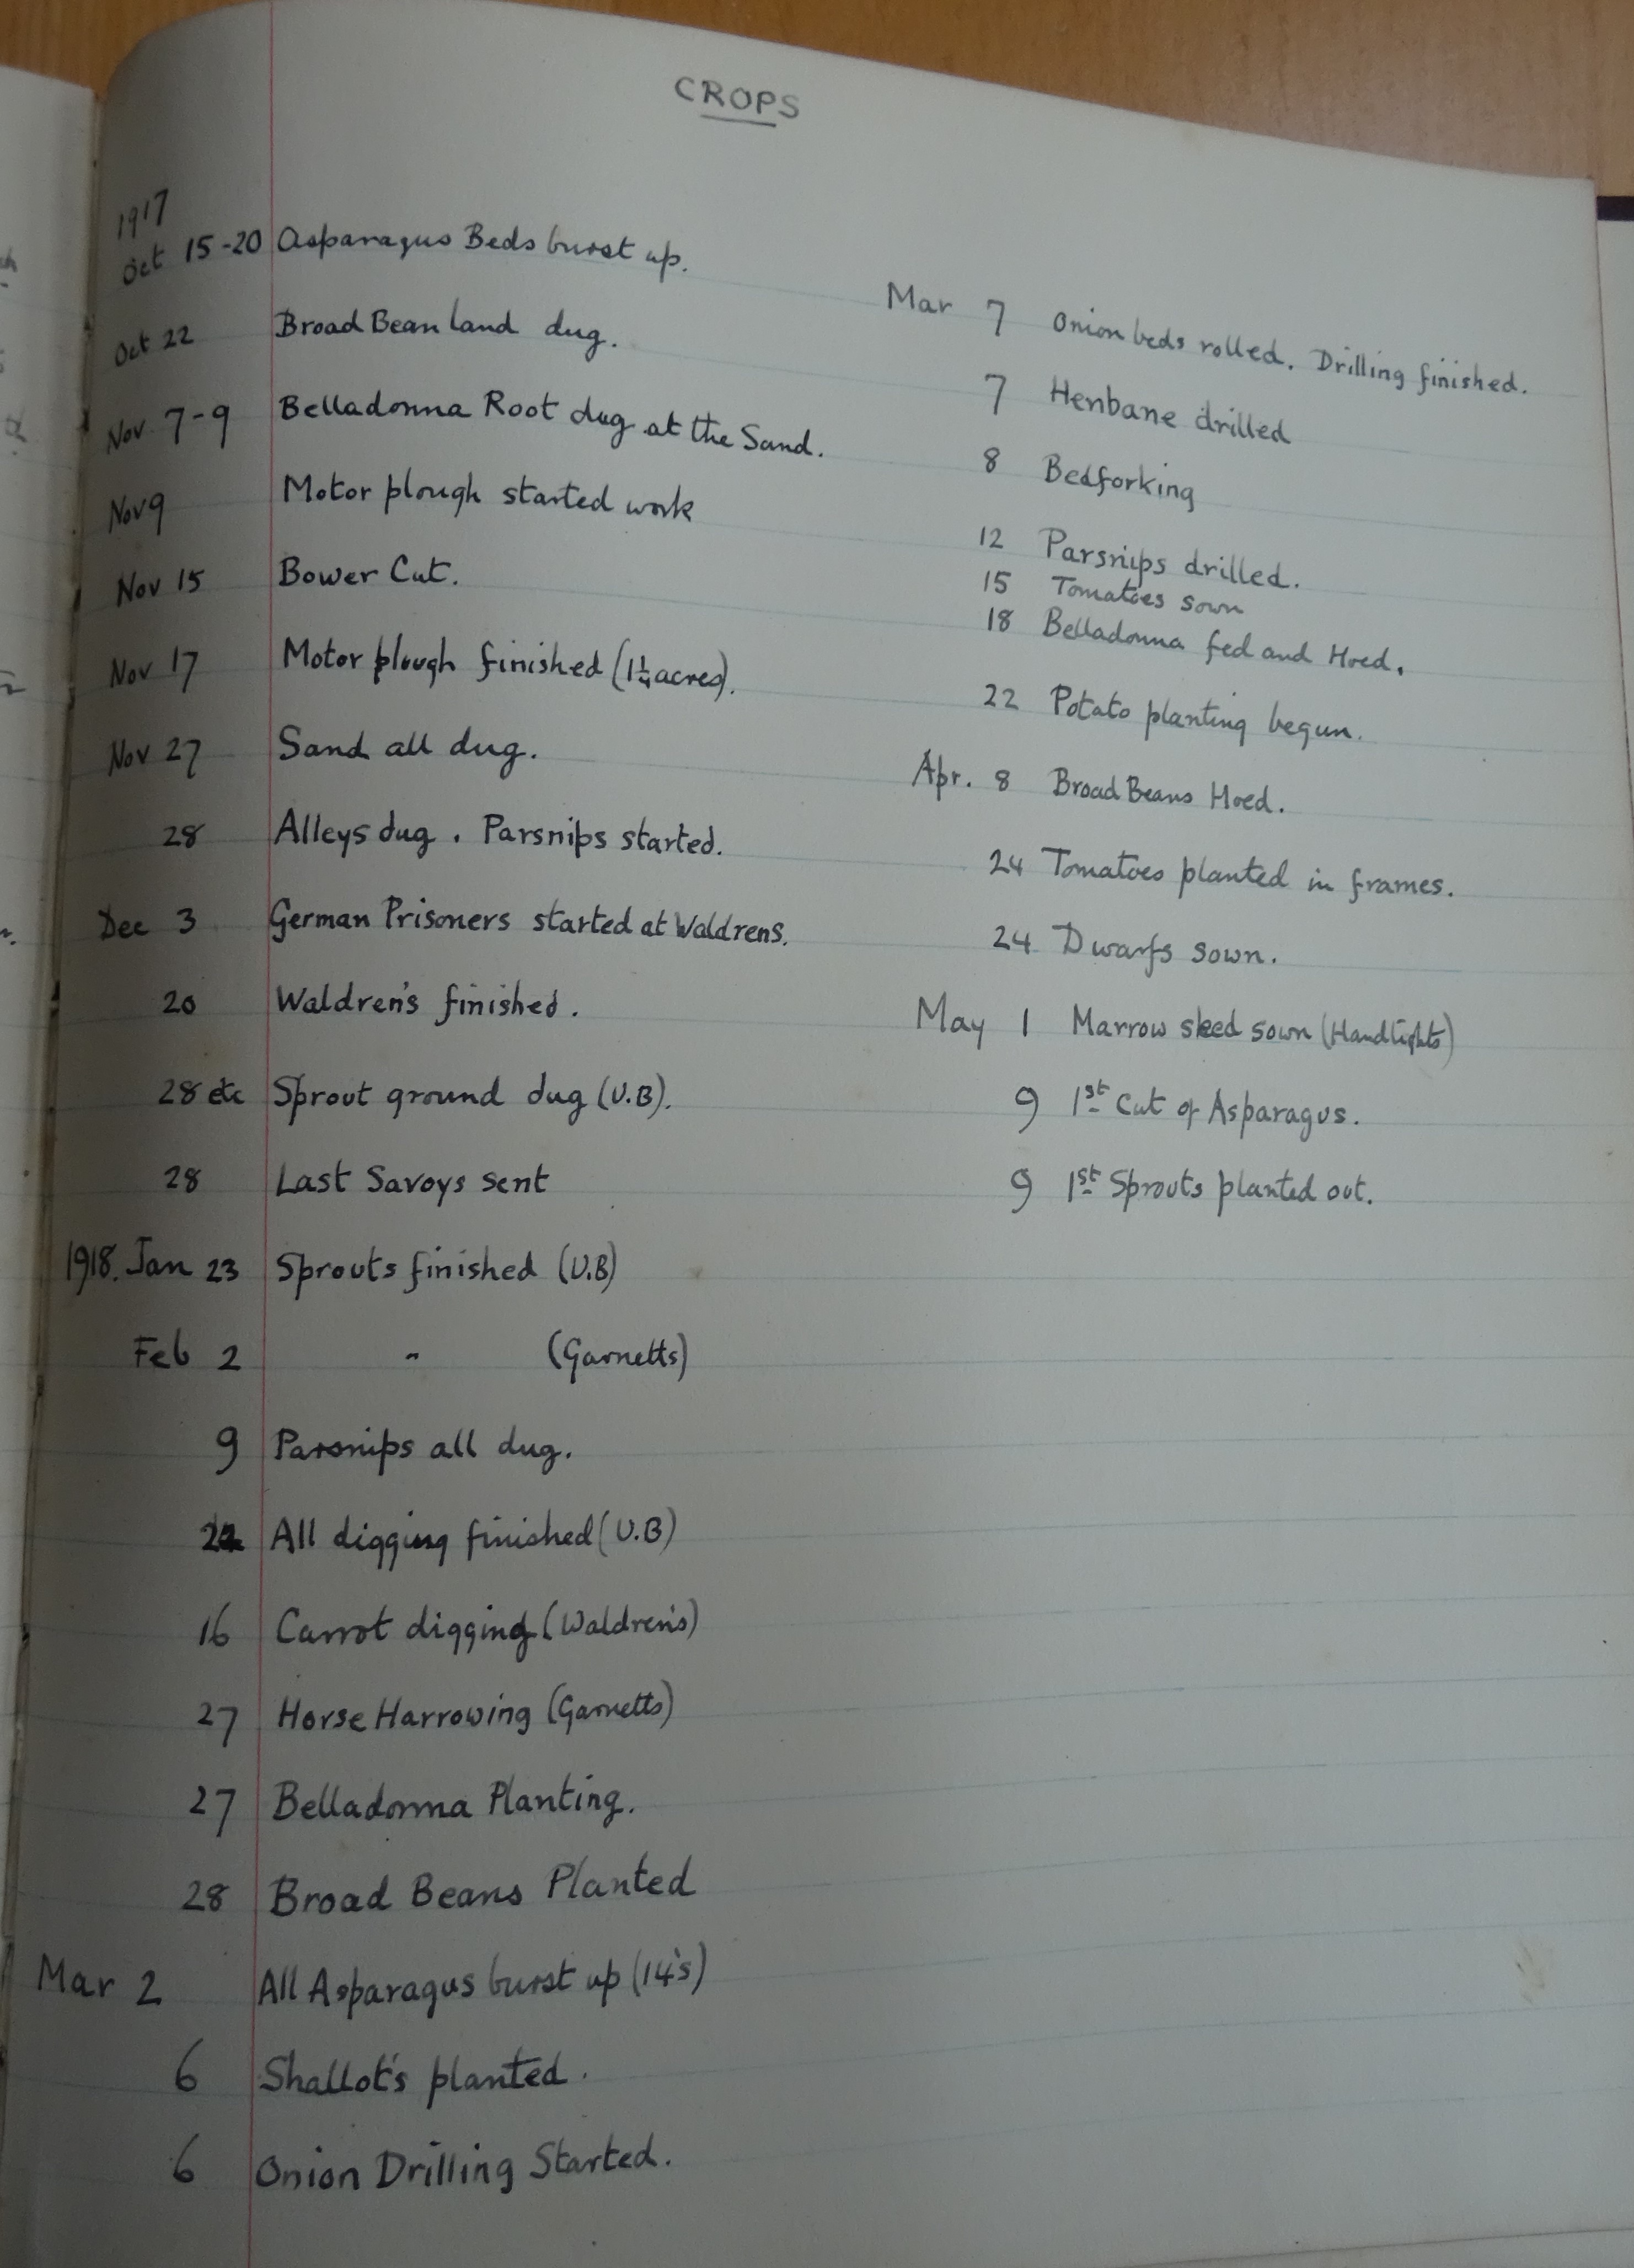 CROPS
1917
Oct 15-20 Asparagus Beds burst up.
Oct 22 Broad Bean land dug.
Nov 7-9 Belladonna Root dug at the Sand.
Nov 9 Motor plough started work
Nov 15 Bower Cut.
Nov 17 Motor plough finished (1¼ acres).
Nov 27 Sand all dug.
28 Alleys dug. Parsnips started.
Dec 3 German Prisoners started at Waldrens.
20 Waldren's finished.
28 etc Sprout ground dug (U.B).
28 Last Savoys sent
1918. Jan 23 Sprouts finished (U.B)
Feb 2 " (Garnetts)
9 Parsnips all dug.
All digging finished (U.B)
16 Carrot digging (Waldren's)
27 Horse Harrowing (Garnetts)
27 Belladonna Planting.
28 Broad Beans Planted
Mar 2 All Asparagus burst up (14's)
6 Shallot's planted.
6 Onion Drilling Started.
Mar 7 Onion beds rolled. Drilling finished.
7 Henbane drilled
8 Bedforking
12 Parsnips drilled.
15 Tomatoes sown
18 Belladonna fed and Hoed.
22 Potato planting begun.
Apr. 8 Broad Beans Hoed.
24 Tomatoes planted in frames.
24 Dwarfs sown.
May 1 Marrow seed sown (Handlights)
9 1st Cut of Asparagus.
9 1st Sprouts planted out.